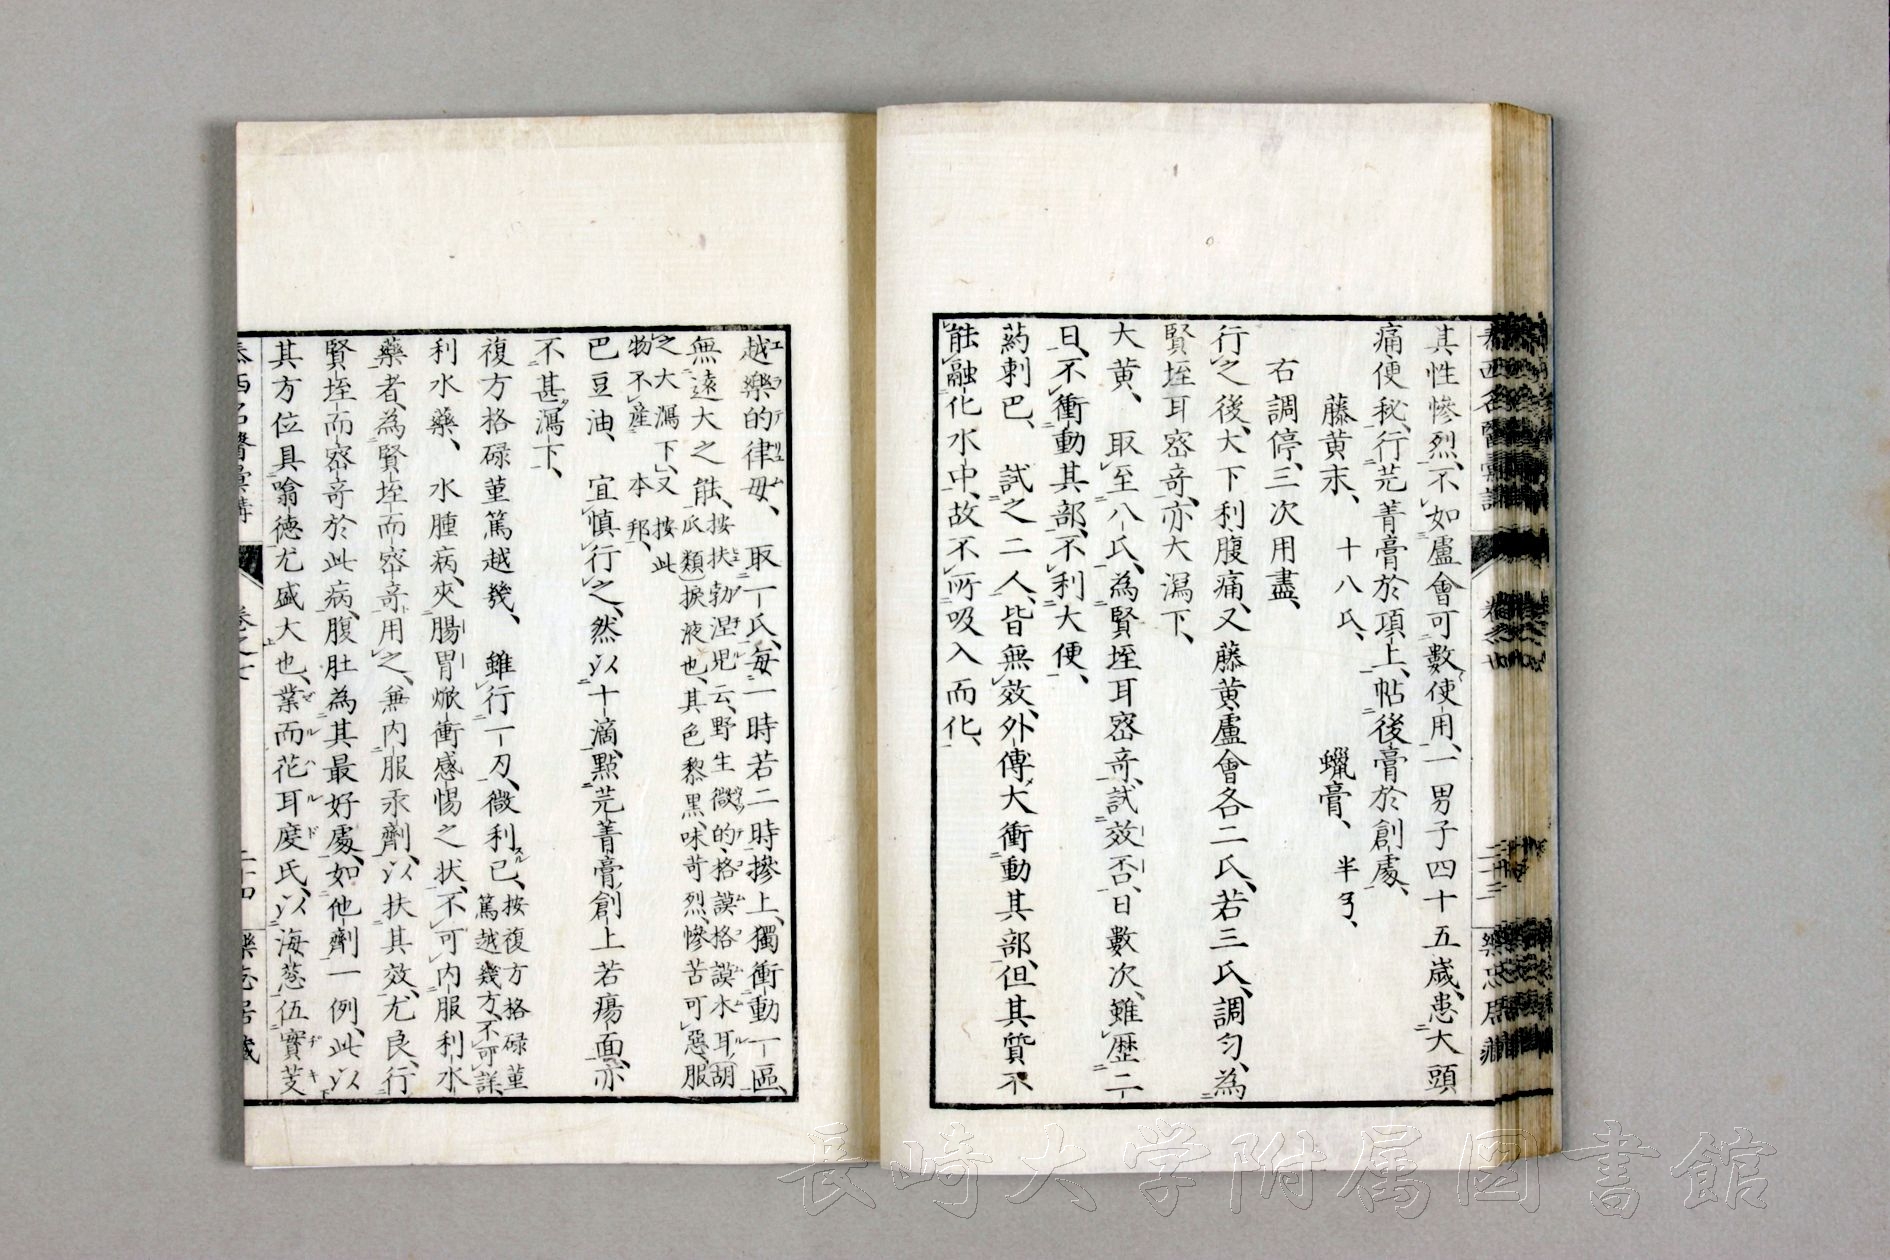 其性慘烈、不如盧會可數使用、一男子四十五歳、患大頭
痛便秘、行芫菁膏於項上、帖後膏於創處、
藤黄末、十八氏、蠟膏、半
右調停、三次用盡、
行之後、大下利腹痛、又藤黄盧會各二氏、若三氏、調匀、為
賢垤耳宻奇、亦大瀉下、
大黄、取至八氏、為賢垤耳宻奇、試效否、日數次、雖歴二
日、不衝動其部、不利大便、
葯剌巴、試之二人、皆無效、外傳、大衝動其部、但其質不
能融化水中、故不所吸入而化、
二十三
樂志居藏
越樂的律毋、取一氏、毎一時若二時摻上、獨衝動一區、
無遠大之能、按扶勃涅児云、野生微的格謨格謨水耳胡
瓜類捩液也、其色黎黒、味苛烈、慘苦可惡、服
之大瀉下、又按此
物不産本邦、
巴豆油、宜慎行之、然以十滴、點芫菁膏、創上若瘍面、亦
不甚瀉下、
複方格碌菫篤越幾、雖行一刀、微利已、按複方格碌菫
篤越幾方、不可詳、
利水藥、水腫病、夾腸胃焮衝感惕之状、不可内服利水
藥者、為賢垤而宻奇用之、兼内服汞劑、以扶其效、尤良、行
賢垤而宻奇於此病、腹肚為其最好處、如他劑一例、此以
其方位具噏德尤盛大也、業而花耳度氏、以海葱伍實芰
泰西名醫彙講
卷之七
二十四
樂志居藏
長崎大学附属図書館